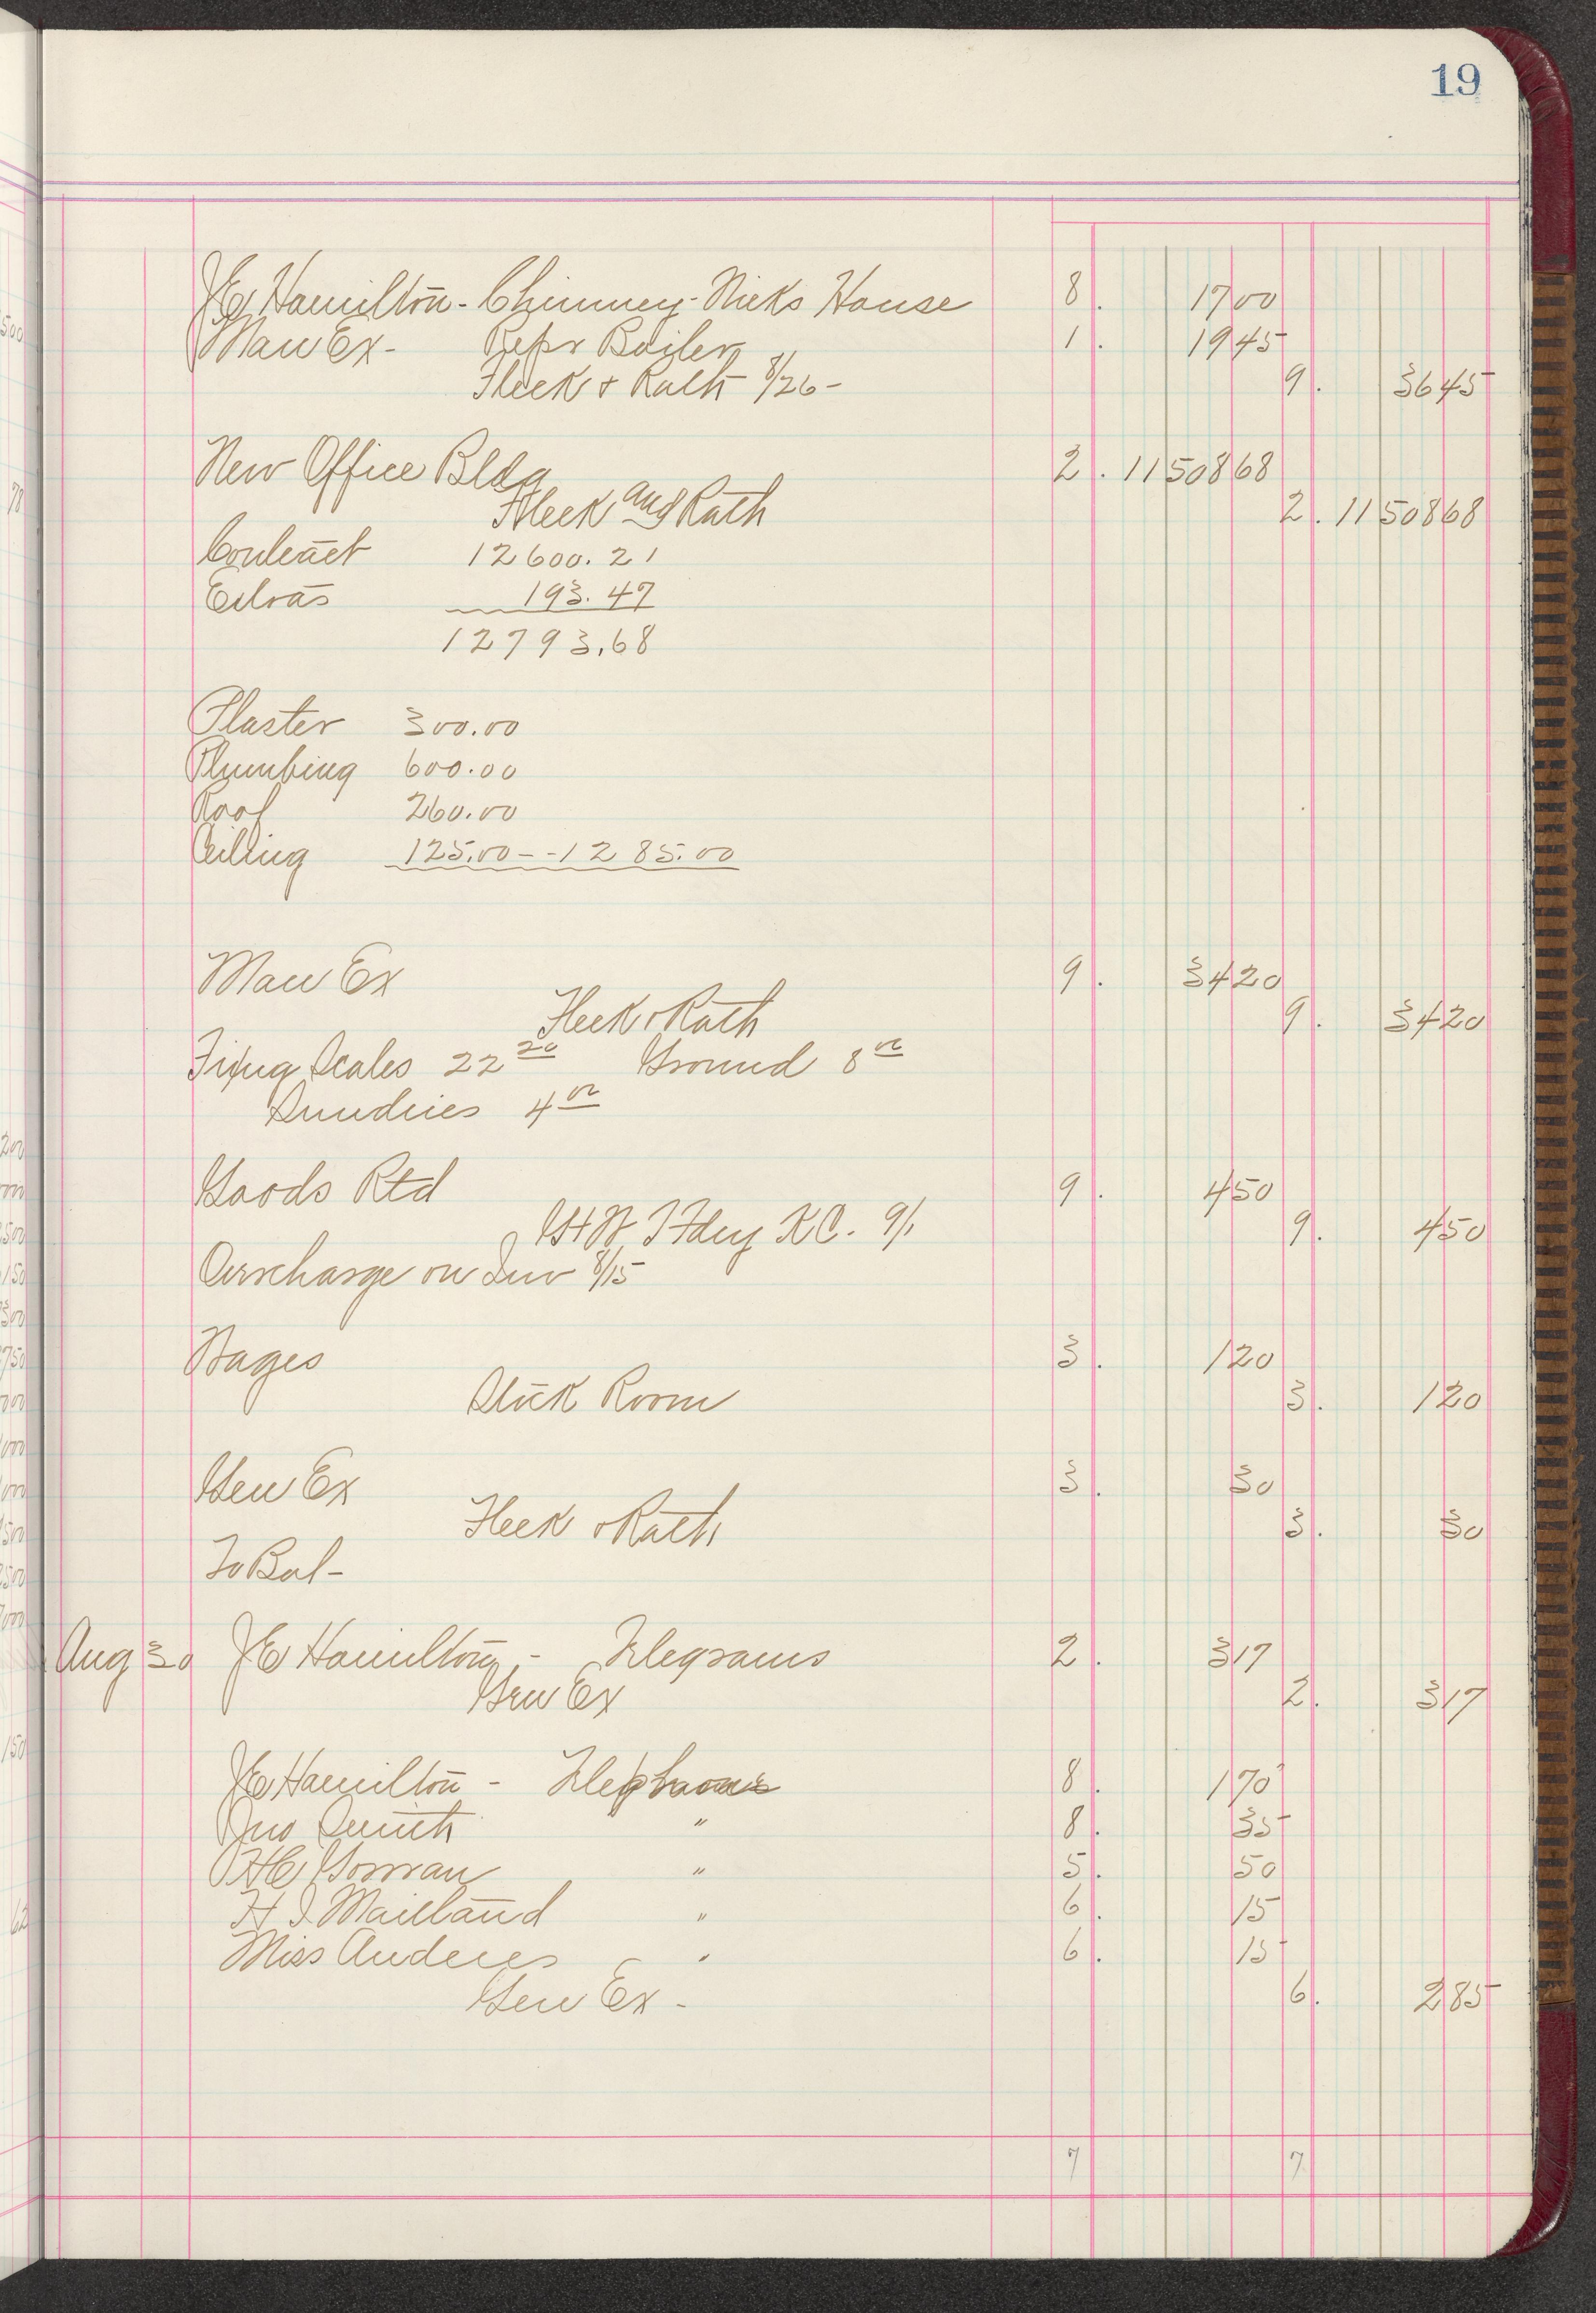 19
J E Hamilton - Chimney - Nicks House 8. 1700
Man Ex - Repr Boiler 1. 1945
Fleek & Rath 8/26 - 9. 3645
New Office Bldg 2. 1150868
Fleek and Rath 2. 1150868
Contract 12600.21
Extras 193.47
12793.68
Plaster 300.00
Plumbing 600.00
Roof 260.00
Ceiling 125.00 - - 1285.00
Man Ex 9. 3420
Fleek & Rath 9. 3420
Fixing Scales 22 20 Ground 8 00
Sundries 4 00
Goods Rtd 9. 450
Fdry K C. 9/1 9. 450
Overcharge on Inv 8/15
Wages 3. 120
Stock Room 3. 120
Gen Ex 3. 30
Fleek & Rath 3. 30
To Bal -
Aug 30 J E Hamilton - Telegrams 2. 317
Gen Ex 2. 317
J E Hamilton - Telephone 8. 170
Jno Smith " 8. 35
H C Gorman " 5. 50
H I Maitland " 6. 15
Miss Anderes - " 6. 15
Gen Ex - 6. 285
7 7